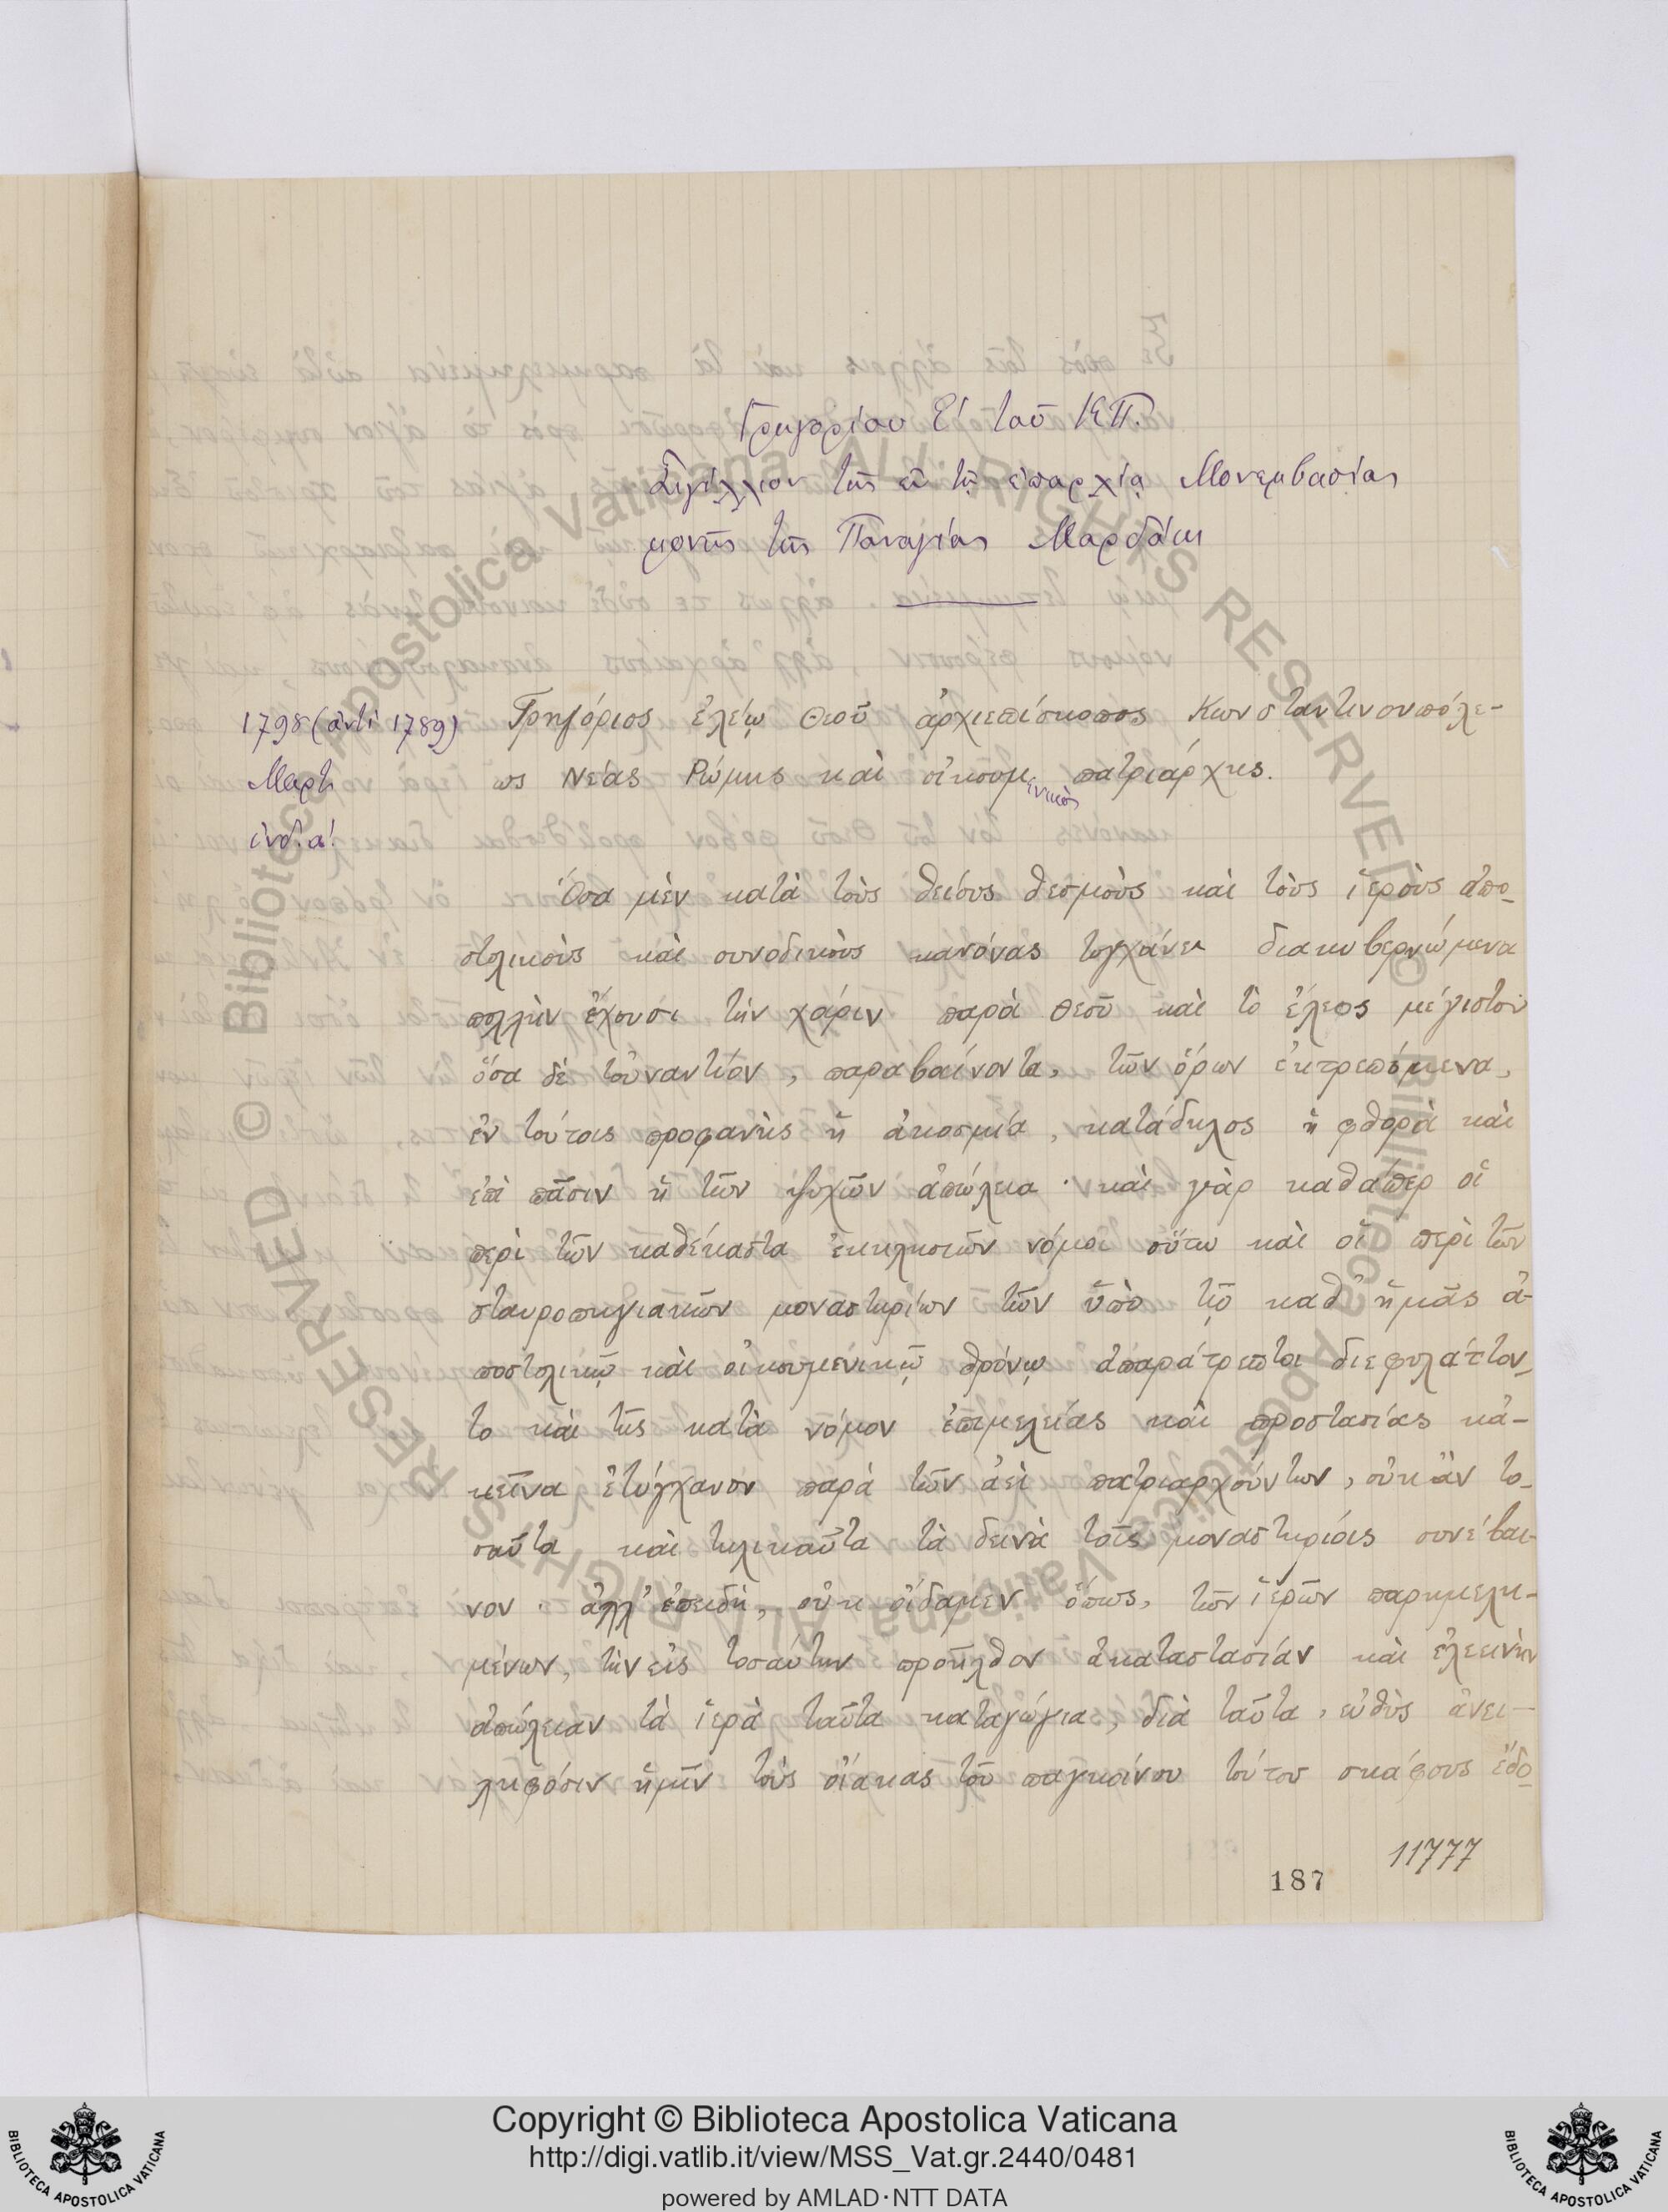 Γρηγορίου Ε' τοῦ ΚΠ.
Σιγίλλιον τῆς ἐν τῇ ἐπαρχίᾳ Μονεμβασίας
μονῆς τῆς Παναγίας Μαρδάκη
1798 (ἀντὶ 1789)
Μαρτ.
ἰνδ. α'.
Γρηγόριος ἐλέῳ Θεοῦ ἀρχιεπίσκοπος Κωνσταντινουπόλε-
ως Νέας Ρώμης καὶ οἰκουμενικὸς πατριάρχης.
Ὅσα μὲν κατὰ τοὺς θείους θεσμοὺς καὶ τοὺς ἱεροὺς ἀπο-
στολικοὺς καὶ συνοδικοὺς κανόνας τυγχάνει διακυβερνώμενα
πολλὴν ἔχουσι τὴν χάριν παρὰ Θεοῦ καὶ τὸ ἔλεος μέγιστον
ὅσα δὲ τοὐναντίον, παραβαίνοντα, τῶν ὅρων ἐκτρεπόμενα,
ἐν τούτοις προφανὴς ἡ ἀκοσμία, κατάδηλος ἡ φθορὰ καὶ
ἐπὶ πᾶσιν ἡ τῶν ψυχῶν ἀπώλεια · καὶ γὰρ καθάπερ οἱ
περὶ τῶν καθέκαστα ἐκκλησιῶν νόμοι οὕτω καὶ οἱ περὶ τῶν
σταυροπηγιακῶν μοναστηρίων τῶν ὑπὸ τῷ καθ' ἡμᾶς ἀ-
ποστολικῷ καὶ οἰκουμενικῷ θρόνῳ ἀπαράτρεπτοι διεφυλάττον-
το καὶ τῆς κατὰ νόμον ἐπιμελείας καὶ προστασίας κἀ-
κεῖνα ἐτύγχανον παρὰ τῶν ἀεὶ πατριαρχούντων, οὐκ ἂν το-
σαῦτα καὶ τηλικαῦτα τὰ δεινὰ τοῖς μοναστηρίοις συνέβαι-
νον · ἀλλ' ἐπειδὴ, οὐκ οἴδαμεν ὅπως, τῶν ἱερῶν παρημελη-
μένων, τὴν εἰς τοσαύτην προῆλθον ἀκαταστασίαν καὶ ἐλεεινὴν
ἀπώλειαν τὰ ἱερὰ ταῦτα καταγώγια, διὰ ταῦτα, εὐθὺς ἀνει-
ληφόσιν ἡμῖν τοὺς οἴακας τοῦ παγκοίνου τούτου σκάφους ἔδο-
11777
187
Copyright © Biblioteca Apostolica Vaticana
http://digi.vatlib.it/view/MSS_Vat.gr.2440/0481
powered by AMLAD·NTT DATA